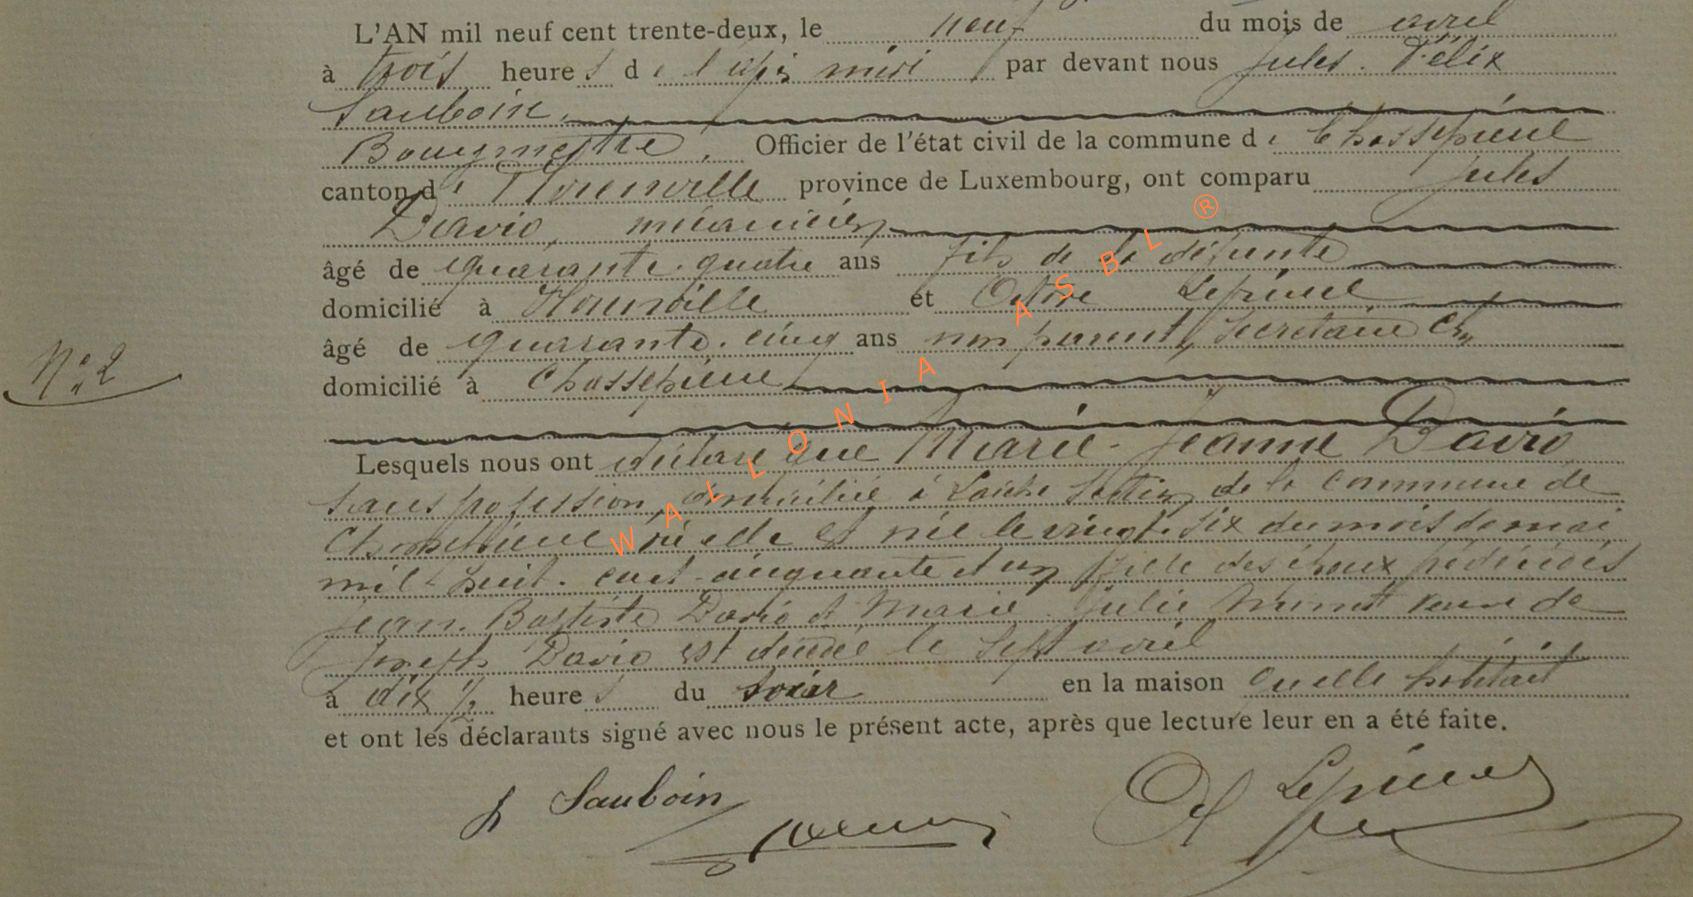 L'AN mil neuf cent trente-deux, le neuf du mois de avril
à trois heures de l'après midi par devant nous Jules. Félix
Sauboin,
Bourgmestre, Officier de l'état civil de la commune de Chassepierre
canton de Florenville province de Luxembourg, ont comparu Jules
David, mécanicien
âgé de quarante-quatre ans fils de la défunte
domicilié à et Lepierre
âgé de quarante-cinq ans non parent, secrétaire
domicilié à Chassepierre
N° 2
Lesquels nous ont déclaré que Marie-Jeanne David
sans profession, domiciliée à Laiche section de la commune de
Chassepierre où elle est née le vingt-six du mois de mai
mil-huit-cent-cinquante et un fille des époux prédécédés
Jean-Baptiste David et Marie Julie veuve de
Joseph David est décédée le sept avril
à dix ½ heures du soir en la maison qu'elle habitait
et ont les déclarants signé avec nous le présent acte, après que lecture leur en a été faite.
J Sauboin Lepierre
WALLONIA ASBL ®